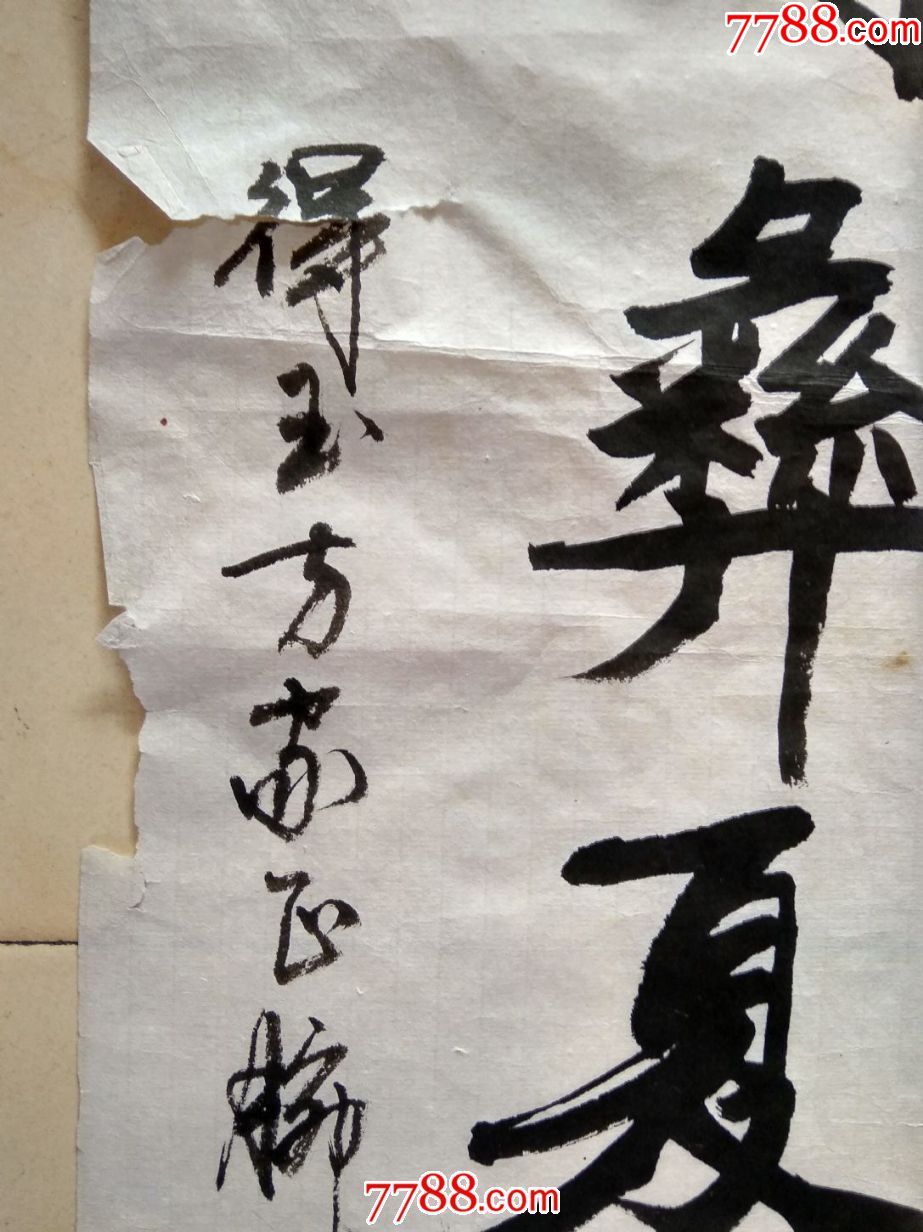 7788.com
彝夏
得玉方家正
7788.com